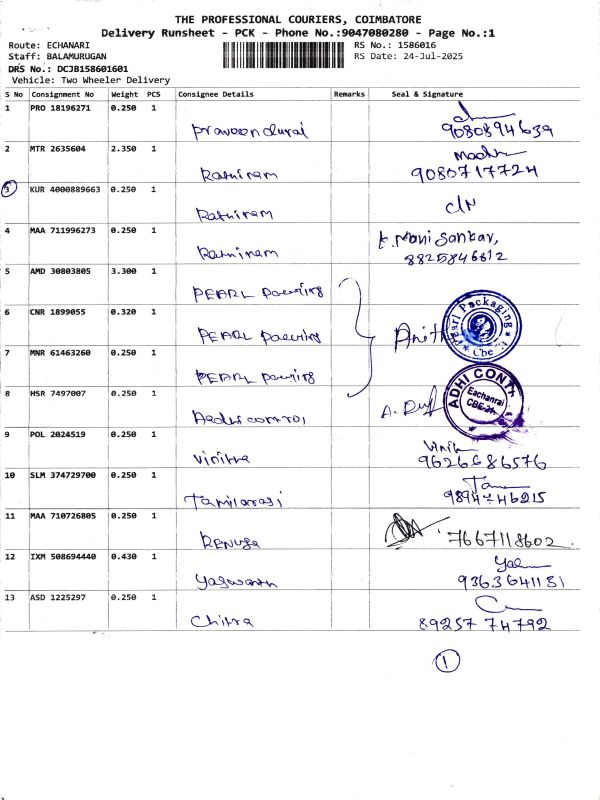 THE PROFESSIONAL COURIERS, COIMBATORE
Delivery Runsheet - PCK - Phone No.:9047080280 - Page No.:1
Route: ECHANARI RS No.: 1586016
Staff: BALAMURUGAN RS Date: 24-Jul-2025
DRS No.: DCJB158601601
Vehicle: Two Wheeler Delivery
S No Consignment No Weight PCS Consignee Details Remarks Seal & Signature
1 PRO 18196271 0.250 1
Praveen durai 9080894639
2 MTR 2635604 2.350 1
Rathiram 9080717724
3 KUR 4000889663 0.250 1
Rathiram
4 MAA 711996273 0.250 1 t. Mani Sankar,
Rathiram 8825846612
5 AMD 30803805 3.300 1
PEARL
6 CNR 1899055 0.320 1
PEARL Pearl Packaging Cbe
7 MNR 61463260 0.250 1
PEARL
8 HSR 7497007 0.250 1
ADHI CONT Eachanari CBE-21
9 POL 2024519 0.250 1
Vinitha 9626686576
10 SLM 374729700 0.250 1
Tamilarasi 9894746215
11 MAA 710726805 0.250 1
RENUGA 7667118602
12 IXM 508694440 0.430 1
Yaswanth 9363641181
13 ASD 1225297 0.250 1
Chitra 89257 74792
1